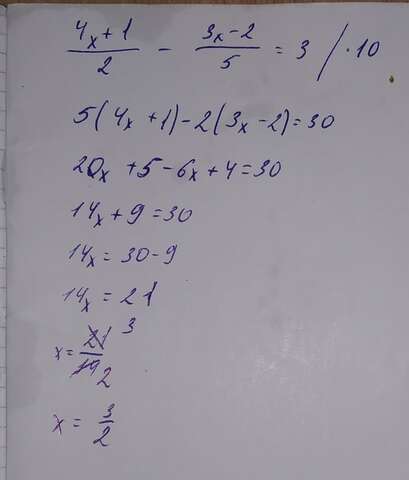 (4x+1)/2 - (3x-2)/5 = 3 / ·10
5(4x+1)-2(3x-2)=30
20x+5-6x+4=30
14x+9=30
14x=30-9
14x=21
x=21/14 3 2
x=3/2